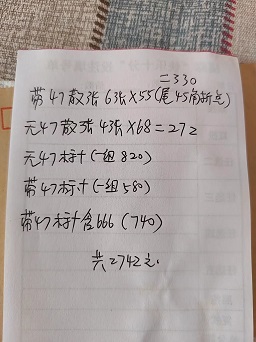 =330
带47散张 6张×55(尾45角折点)
无47散张 4张×68=272
无47标十(一组820)
带47标十(一组580)
带47标十含666(740)
共2742元